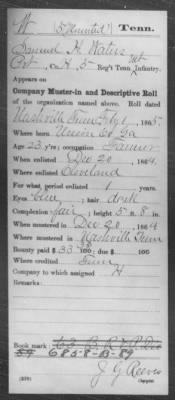 W 5 (Mounted) Tenn.
Samuel H. Waters
Pvt., Co. H, 5 Reg't Tenn. Mt Infantry.
Appears on
Company Muster-in and Descriptive Roll
of the organization named above. Roll dated
Nashville Tenn Feby 6, 1865.
Where born Union Co Ga
Age 23 y'rs; occupation Farmer
When enlisted Dec 20, 1864.
Where enlisted Cleveland
For what period enlisted 1 years.
Eyes blue; hair dark
Complexion fair; height 5 ft. 8 in.
When mustered in Dec 20, 1864
Where mustered in Nashville Tenn
Bounty paid $ 33 100; due $ 100
Where credited Tenn
Company to which assigned H
Remarks:
Book mark:
6858-B-89
J. G. Reeves
Copyist.